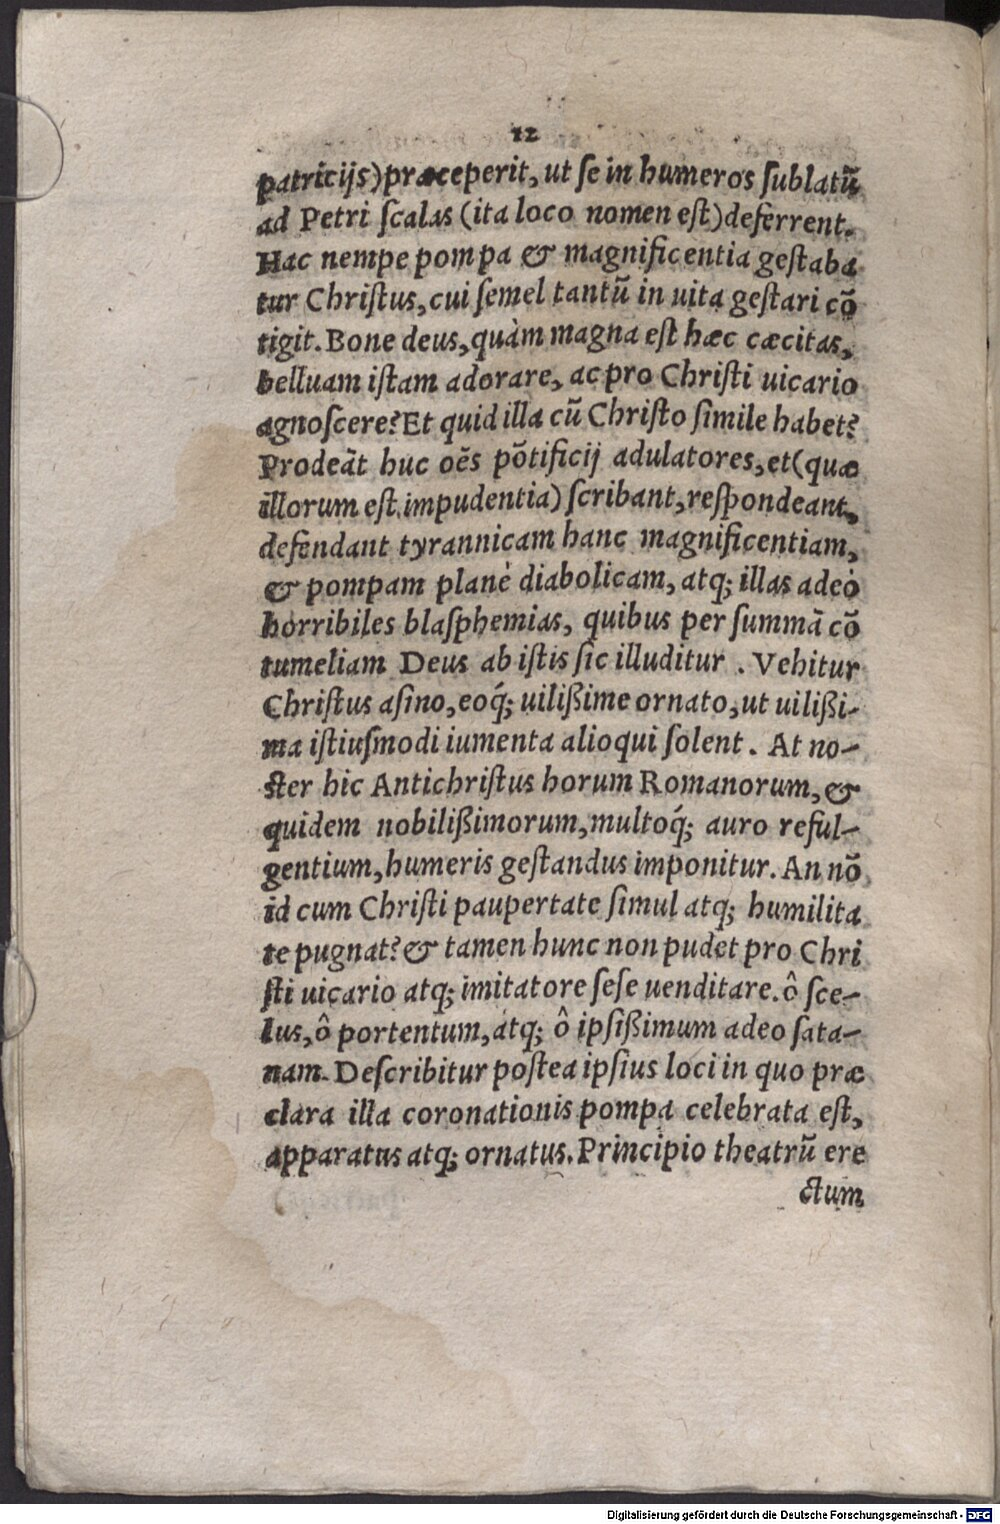 12
patricijs)præceperit, ut ſe in humeros ſublatũ
ad Petri ſcalas (ita loco nomen eſt)deferrent.
Hac nempe pompa & magnificentia geſtaba
tur Chriſtus, cui ſemel tantũ in uita geſtari cõ
tigit. Bone deus, quàm magna eſt hæc cæcitas,
belluam iſtam adorare, ac pro Chriſti uicario
agnoſcere? Et quid illa cũ Chriſto ſimile habet?
Prodeãt huc oẽs põtificij adulatores, et(quæ
illorum eſt impudentia) ſcribant, reſpondeant,
defendant tyrannicam hanc magnificentiam,
& pompam planè diabolicam, atq; illas adeò
horribiles blaſphemias, quibus per ſummã cõ
tumeliam Deus ab iſtis ſic illuditur. Vehitur
Chriſtus aſino, eoq́; uilißime ornato, ut uilißi-
ma iſtiuſmodi iumenta alioqui ſolent. At no-
ſter hic Antichriſtus horum Romanorum, &
quidem nobilißimorum, multoq́; auro reful-
gentium, humeris geſtandus imponitur. An nõ
id cum Chriſti paupertate ſimul atq; humilita
te pugnat? & tamen hunc non pudet pro Chri
ſti uicario atq; imitatore ſeſe uenditare. ô ſce-
lus, ô portentum, atq; ô ipſißimum adeo ſata-
nam. Deſcribitur poſtea ipſius loci in quo præ
clara illa coronationis pompa celebrata eſt,
apparatus atq; ornatus. Principio theatrũ ere
ctum
Digitalisierung gefördert durch die Deutsche Forschungsgemeinschaft - DFG